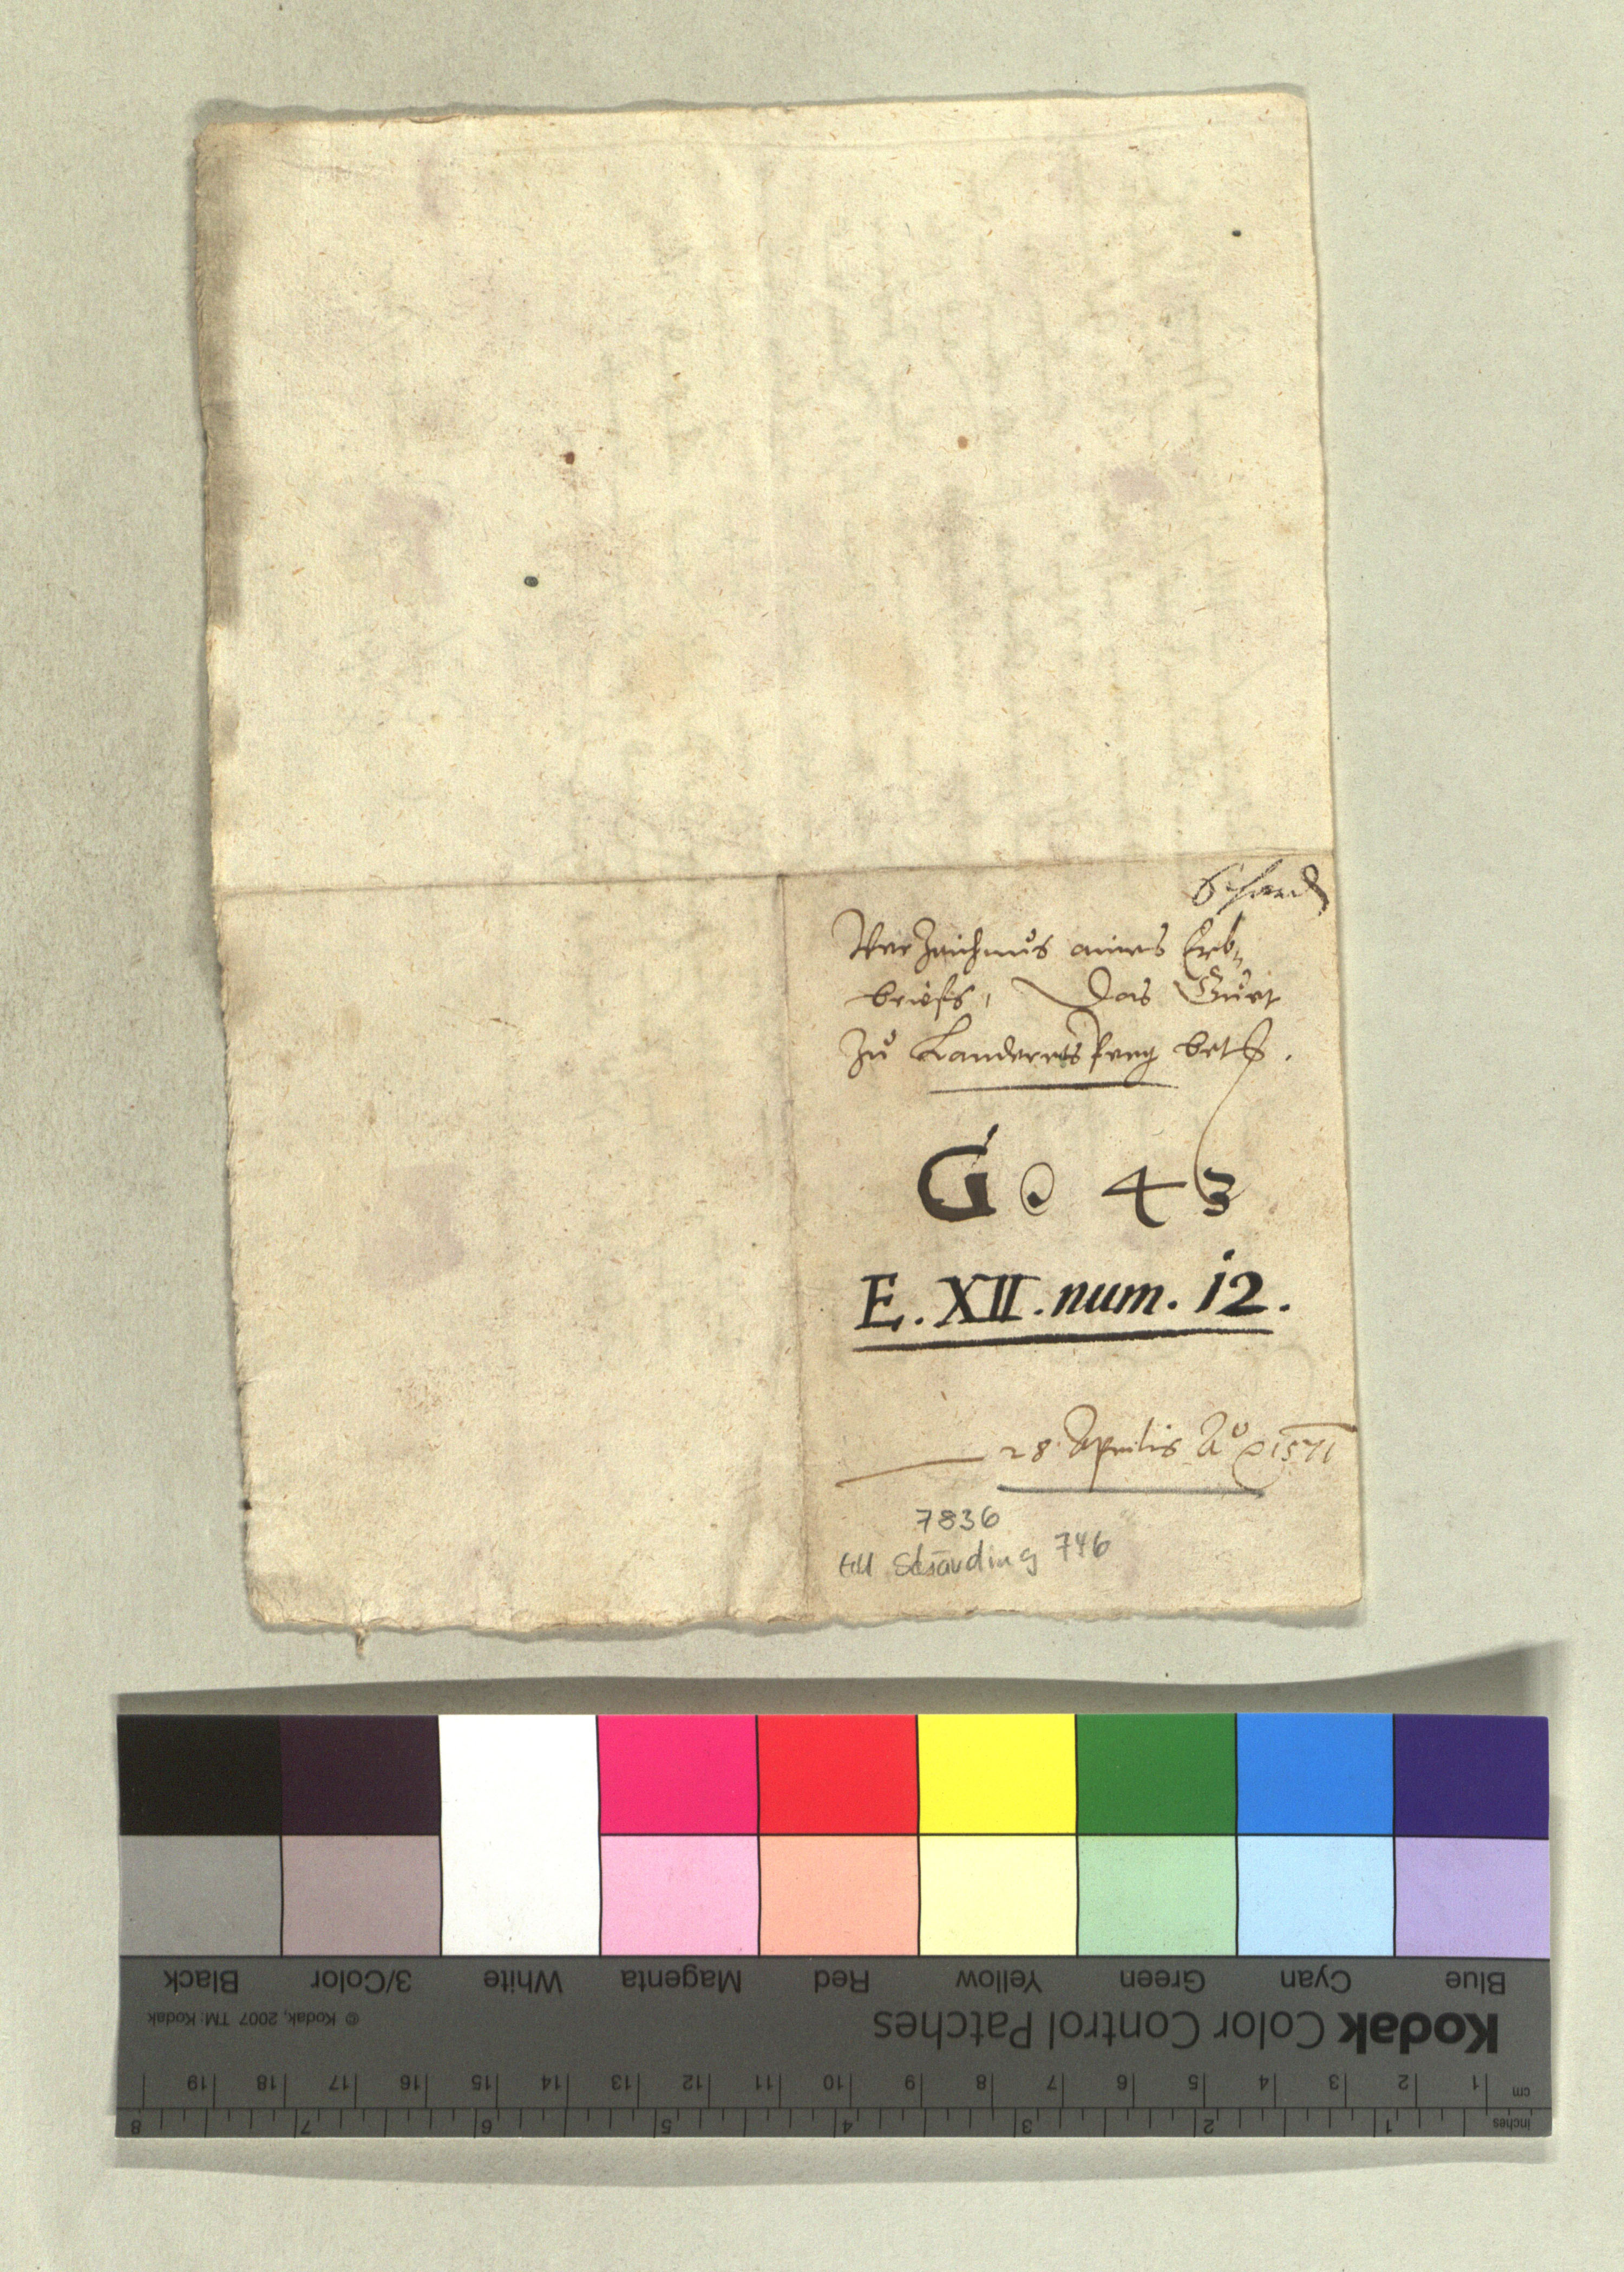 Verzaichnus aines Erb„
briefs, Das Guet
zu Landerersperg betr.
G 43
E. XII. num. i2.
28 Aprilis Aº 1571
7836
HU Schärding 746
Black
3/Color
White
Magenta
Red
Yellow
Green
Cyan
Blue
Kodak Color Control Patches
© Kodak, 2007 TM: Kodak
cm 1 2 3 4 5 6 7 8 9 10 11 12 13 14 15 16 17 18 19
inches 1 2 3 4 5 6 7 8